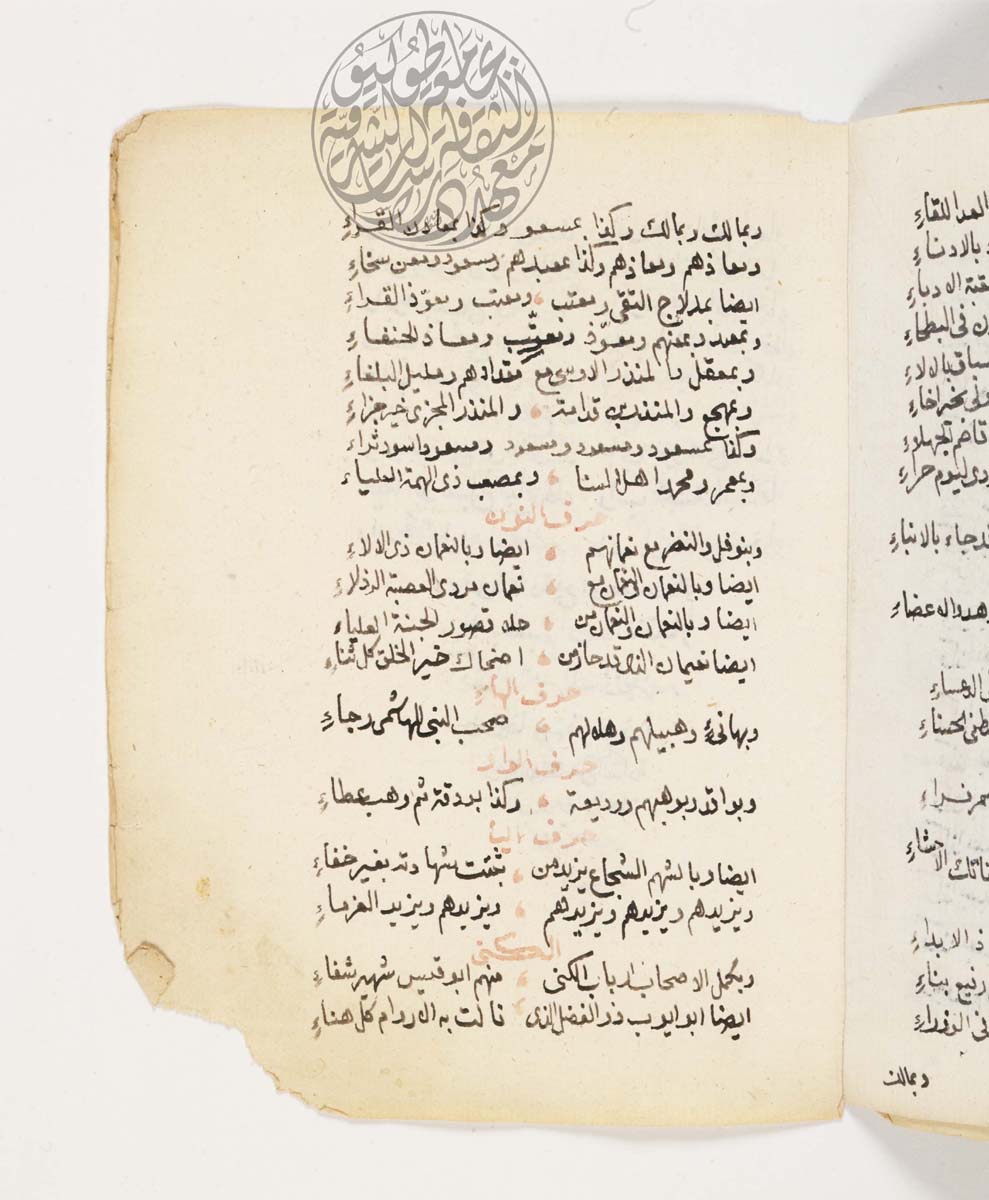 وبمالك وبمالك وكذا بمسعو وكذا بمعادن القراءِ
وبعاذهم ومعاذهم وكذا بمعبدهم ومسعود ومعن سخاءِ
ايضا بمدلاج التقى ومعتب ومعتب ومعوّذ القراءِ
وبمعبد وبمعنهم ومعوّذ ومعوّب ومعاذ الحنفاءِ
وبمعقل بالمنذر الاوسي مع مقدادهم ومليل البلغاءِ
وبمهجع والمنذر بن قدامة والمنذر المجزى خير جزاءِ
وكذا بمسعود ومسعود ومسعود ومسعود اسود ثراء
وبمعمر ومحمد اهل السنا وبمصعب ذي الهمة العلياء
حرف النون
وبنوفل والنضر مع نعمانهم ايضا وبالنعمان ذي الالاءِ
ايضا وبالنعمان النعمان مع نعمان مردي العصبة الرذلاءِ
ايضا وبالنعمان والنعمان من حله قصور الجنة العلياءِ
ايضا نعيمان الذي قد حاز من اضحاك خير الخلق كل ثناءِ
حرف الهاء
وبهانئ وهبيلهم وهلالهم صحب النبي الهاشمي رجاءِ
حرف الواو
وبواقد وبوهبهم ووديعة وكذا بودقة ثم وهب عطاءِ
حرف اليا
ايضا وبالشهم الشجاع يزيد من ثبتت شهادته بغير خفاءِ
ويزيدهم ويزيدهم ويزيدهم ويزيدهم ويزيد العزماءِ
الكنى
وبكمل الاصحاب ارباب الكنى منهم ابو قيس شهير شفاءِ
ايضا ابو ايوب ذو الفضل الذي نالت به الاروام كل هناءِ
اللقاءِ
بالادناءِ
في البطحاءِ
الجهلاءِ
جاء بالانباءِ
الحسناءِ
ذ الابداءِ
رفيع بناءِ
وبمالك
معهد الثقافة والدراسات الشرقية
جامعة طوكيو